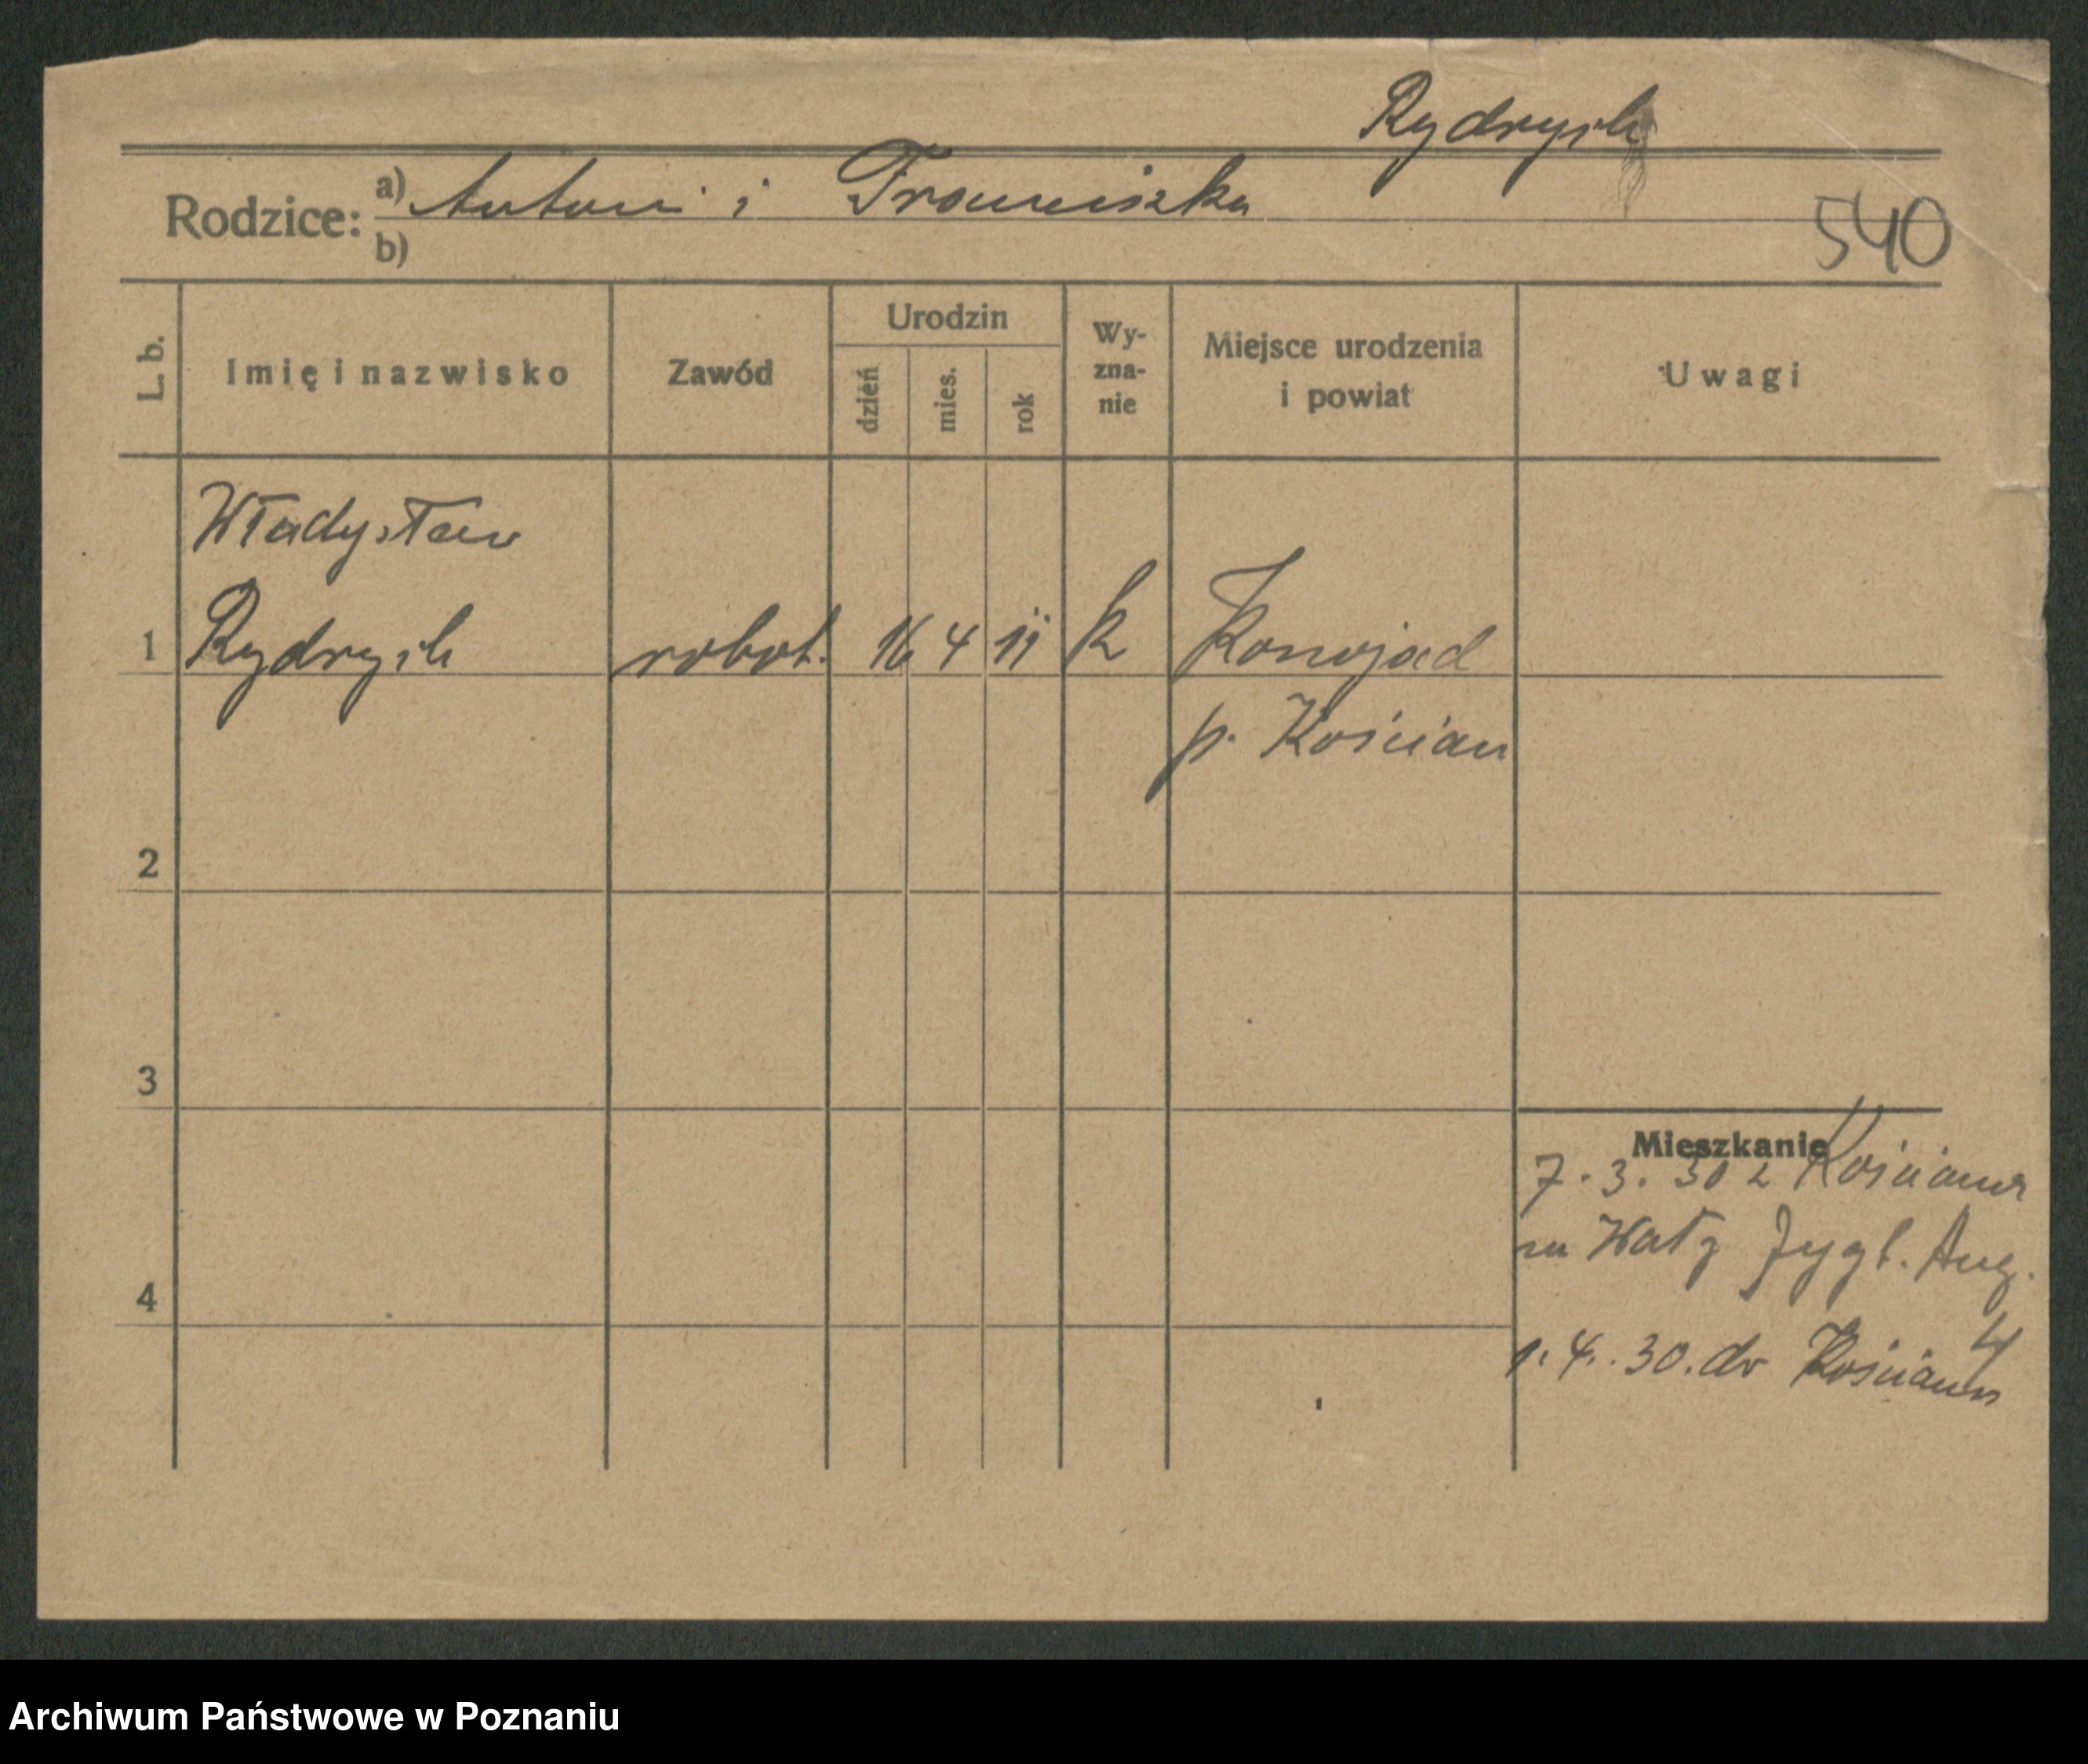 Rydrych
Rodzice: a) Antoni i Franciszka
b)
540
L. b.
Imię i nazwisko
Zawód
Urodzin
dzień
mies.
rok
Wy-
zna-
nie
Miejsce urodzenia
i powiat
Uwagi
Władysław
1 Rydrych robot. 16 4 11 k Konojad
p. Kościan
2
3
4
Mieszkanie
7.3.30 z Kościana
na Aug.
4
1.4.30. do Kościana
Archiwum Państwowe w Poznaniu